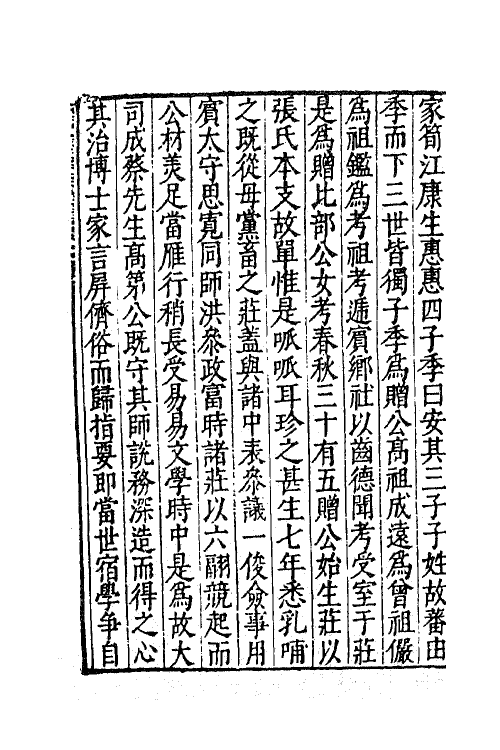 家筍江康生惠惠四子季曰安其三子子姓故蕃由
季而下三世皆獨子季爲贈公高祖成遠爲曾祖儼
爲祖鑑爲考祖考遞賓鄉社以齒德聞考受室于莊
是爲贈比部公女考春秋三十有五贈公始生莊以
張氏本支故單惟是呱呱耳珍之甚生七年悉乳哺
之既從母黨畜之莊蓋與諸中表參議一俊僉事用
賓太守思寬同師洪參政富時諸莊以六翮競起而
公材美足當雁行稍長受易易文學時中是爲故大
司成蔡先生高第公既守其師說務深造而得之心
其治博士家言屏儕俗而歸指要即當世宿學爭自